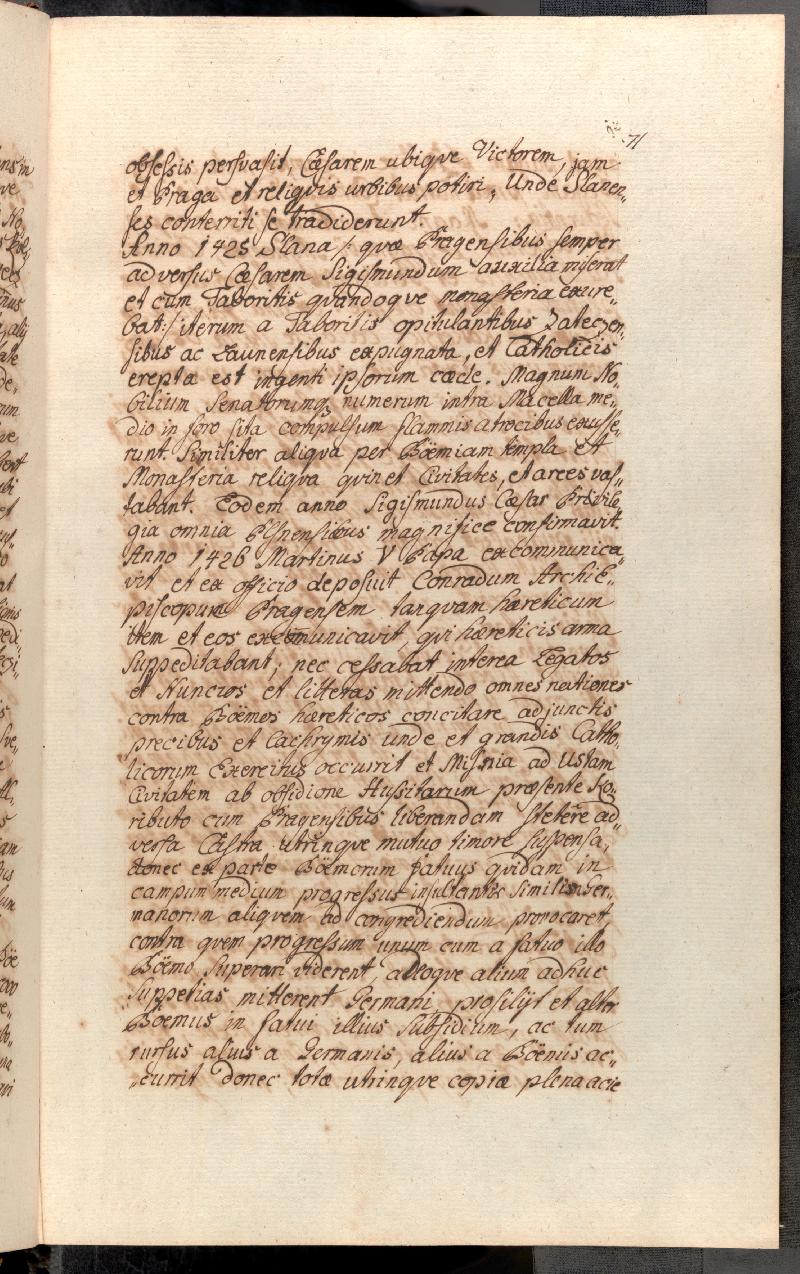 71
obsessis persvasit, Cæsarem ubiqve Victorem, jam
et Praga et reliqvis urbibus potiri, Unde Slanen„
ses conterriti se tradiderunt.
Anno 1425 Slana /: qvæ Pragensibus semper
adversus Cæsarem Sigismundum auxilia miserat
et cum Taboritis qvandoqve monasteria exure„
bat :/ iterum a Taboritis opitulantibus Zateczen„
sibus ac Launensibus expugnata, et Catholicis
erepta est ingenti ipsorum cæde. Magnum No„
bilium Senatorumq numerum intra Macella me„
dio in foro sita compulsum flammis atrocibus exusse„
runt. Similiter aliqva per Böemiam templa et
Monasteria reliqva qvin et Civitates, et arces vas„
tabant. Eodem anno Sigismundus Cæsar Privile
gia omnia Plsnensibus magnifice confirmavit.
Anno 1426 Martinus V Papa excommunica„
vit et ex officio deposuit Conradum ArchiE„
piscopum Pragensem tanqvam hæreticum
item et eos excomunicavit, qvi hæreticis arma
suppeditabant; nec cessabat interea Legatos
et Nuncios et litteras mittendo omnes nationes
contra Böemos hæreticos concitare adjunctis
precibus et lachrymis unde et grandis Catho„
licorum Exercitus occurrit et Misnia ad Ustam
Civitatem ab obsidione Hussitarum præsente Ko„
ributo cum Pragensibus liberandam stetêre ad„
versa Castra utrinqve mutuo timore suspensa,
donec ex parte Böemorum fatuus qvidam in
campum medium progressus insultantis similis Ger„
manorum aliqvem ad congrediendum provocaret,
contra qvem progressum unum cum a fatuo illo
Böemo superari viderent, alloqve alium adhuc
suppetias mitterent Germani, prosilijt et alter
Böemus in fatui illius subsidium, ac tum
rursus alius a Germanis, alius a Böemis ac„
„currit donec totæ utrinqve copiæ plena acie